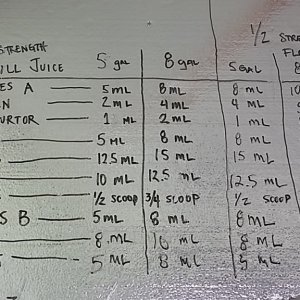 1/2 STRE
STRENGTH FLO
ULL JUICE 5 GAL 8 GAL 5 GAL 8
ES A 5 ML 8 ML 8 ML 10
N 2 ML 4 ML 4 ML
URTOR 1 ML 2 ML 1 ML
5 ML 8 ML 8 ML
12.5 ML 15 ML 15 ML
10 ML 12.5 ML 12.5 ML
1/2 SCOOP 3/4 SCOOP 1/2 SCOOP
S B 5 ML 8 ML 8 ML
8 ML 10 ML 8 ML
5 ML 8 ML 5 ML